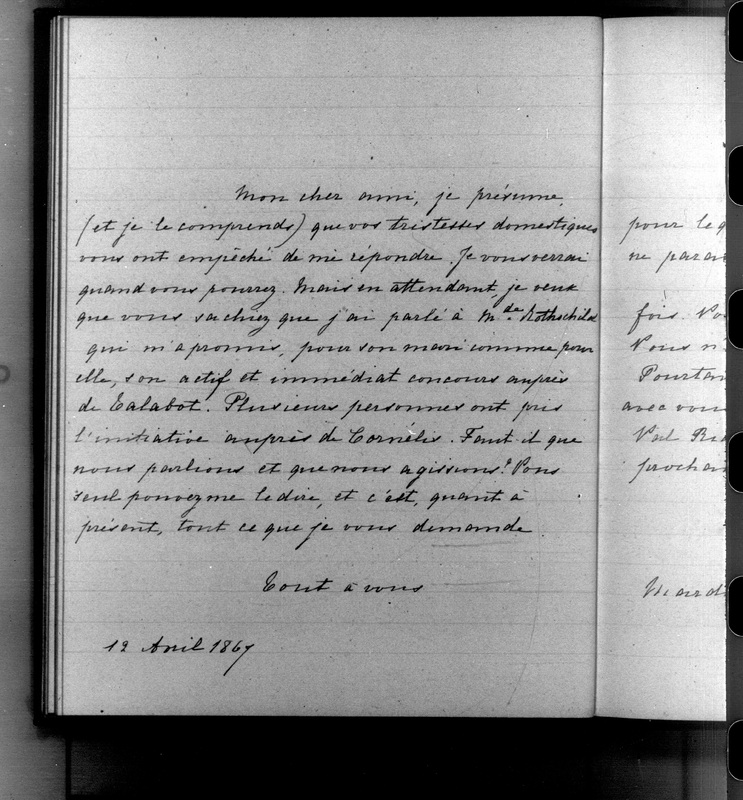 Mon cher ami, je présume,
(et je le comprends) que vos tristesses domestiques
vous ont empêché de me répondre. Je vous verrai
quand vous pourrez. Mais en attendant, je veux
que vous sachiez que j'ai parlé à Mde Rothschild
qui m'a promis, pour son mari comme pour
elle, son actif et immédiat concours auprès
de Talabot. Plusieurs personnes ont pris
l'initiative auprès de Cornélis. Faut il que
nous parlions et que nous agissions? Vous
seul pouvez me le dire, et c'est, quant à
présent, tout ce que je vous demande
Tout à vous
12 Avril 1867
pour le
ne parai
fois. Vo
Vous n'
Pourtan
avec vou
Val
prochai
Mardi